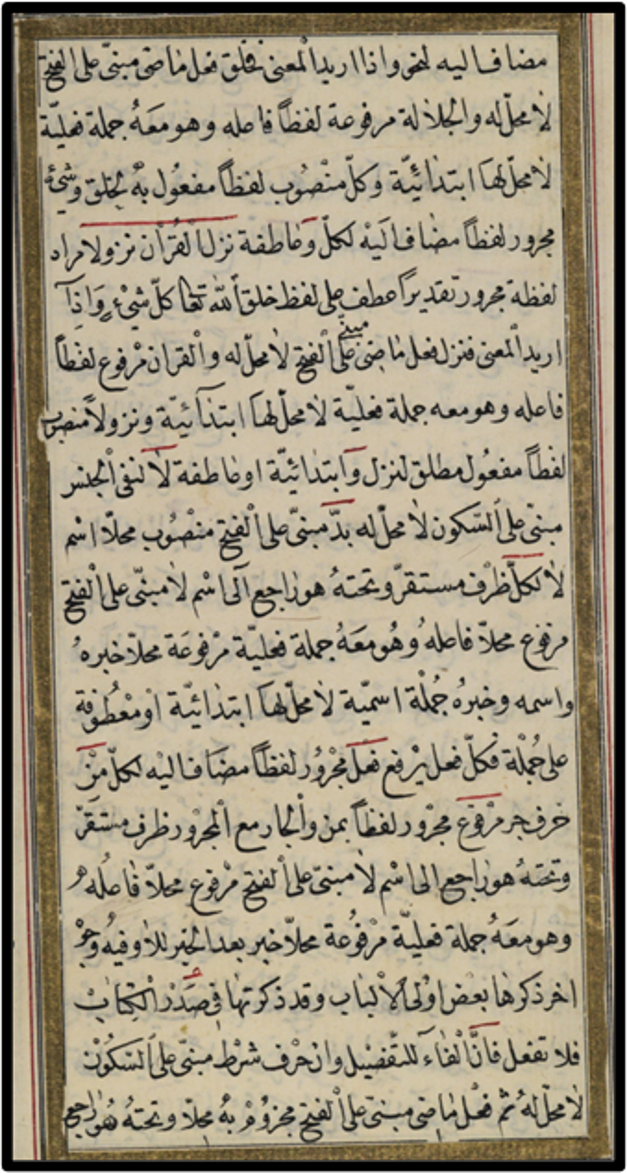 مضاف اليه لنحو واذا اريد المعنى فخلق فعل ماضى مبنىّ على الفتح
لا محلّ له والجلالة مرفوعة لفظاً فاعله وهو معهُ جملة فعليّة
لا محلّ لها ابتدائيّة وكلّ منصُوب لفظاً مفعُول بهُ لخلق وشئ
مجرور لفظاً مضاف اليْه لكلّ وعاطفة نزل القُرْان نزولا مراد
لفظة مجرور تقديراً عطف على لفظ خلق اللّٰه تعالى كلّ شئ وَاِذا
اريد المعنى فنزل فعل ماضى مبنىّ على الفتح لا محلّ له والقران مرْفوع لفظاً
فاعله وهو معه جملة فعليّة لا محلّ لها ابتدآئيّة ونزولاً منصوب
لفظاً مفعُول مطلق لنزل وَابتدائيّة او عاطفة لا لنفى الجنس
مبنىّ على السّكون لا محلّ له بدّ مبنىّ على الفتح منْصُوب محلّا اسْم
لا لكلّ ظرْف مستقرّ وتحتهُ هو راجع الى اسْم لا مبنىّ على الْفتح
مرفوع محلّا فاعلهُ وهُو معَهُ جملة فعليّة مرْفوعَة محلّا خبرهُ
واسمه وخبرهُ جُمْلة اسْميّة لا محلّ لها ابتدائيّة اوْ معْطُوفة
على جُمْلة فكلّ فعل يرْفع فعل مجْرُور لفظاً مضَاف اليْه لكلّ مِنْ
حَرف جر مرْفوع مجرْور لفظاً بمن والجار مع المجْرُور ظرف مستقرّ
وتحتهُ هو راجع الى اسْم لا مبنىّ على الفتح مرْفوع محلّا فاعلُه
وهو معَهُ جملة فعليّة مرْفُوعة محلّا خبر بعد الخبر للا وفيهُ وجوه
اخر ذكرها بعْض اوُلى الالْبَاب وقد ذكرتها فى صَدْر الكِتاب
فلا تغفل فانّ الْفاء للتّفصْيل وان حرْف شرْط مبنىّ على السّكُون
لا محلّ لهُ ثمّ فعْل ماضى مبنىّ على الْفتح مجزوُمْ بهُ محلّا وتحتهُ هُو راجع